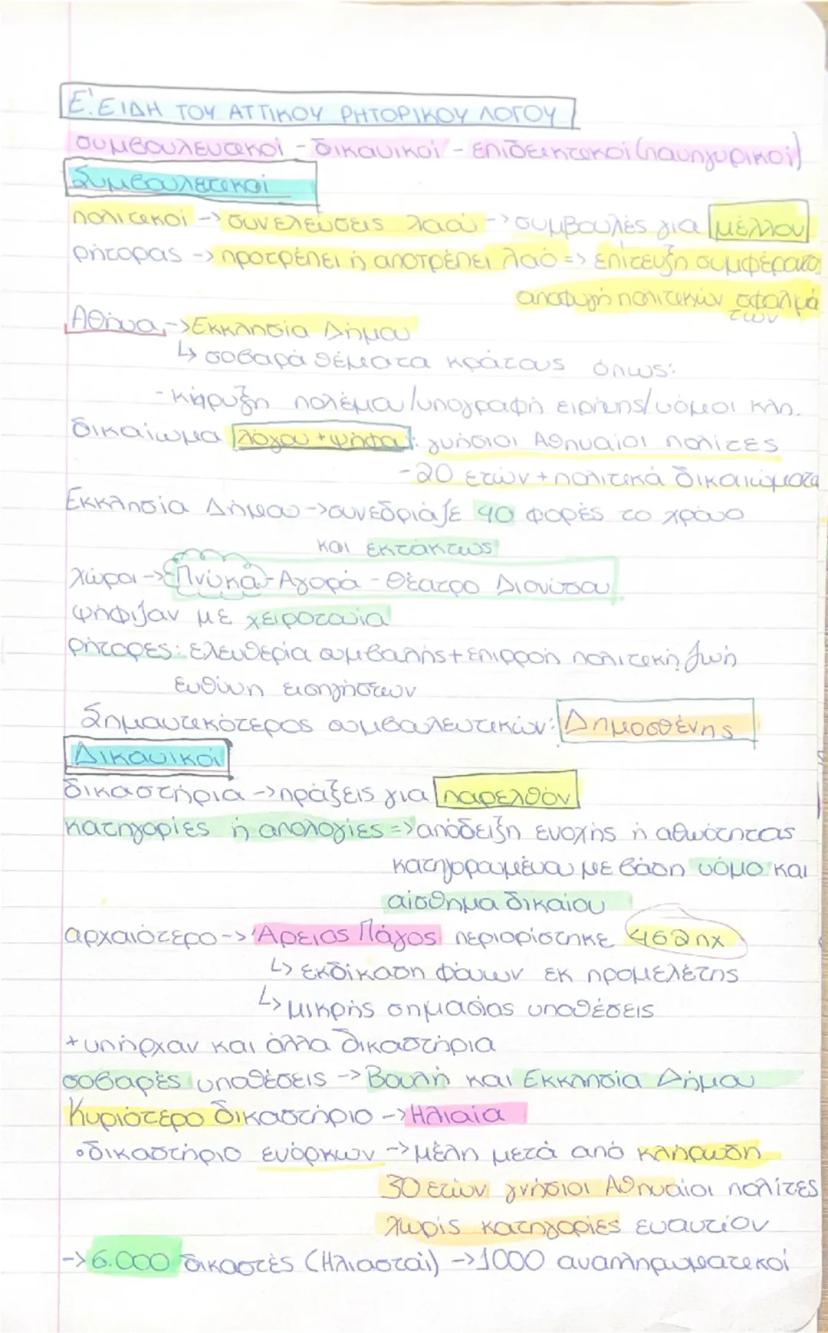 Ε'. ΕΙΔΗ ΤΟΥ ΑΤΤΙΚΟΥ ΡΗΤΟΡΙΚΟΥ ΛΟΓΟΥ
συμβουλευτικοί - δικανικοί - επιδεικτικοί (πανηγυρικοί)
Συμβουλετικοί
πολιτικοί -> συνελεύσεις λαού -> συμβουλές για μέλλον
ρήτορας -> προτρέπει ή αποτρέπει λαό => επίτευξη συμφέροντο
αποφυγή πολιτικών σφαλμά
των
Αθήνα -> Εκκλησία Δήμου
↳ σοβαρά θέματα κράτους όπως:
- κήρυξη πολέμου/υπογραφή ειρήνης/νόμοι κλπ.
δικαίωμα λόγου + ψήφου: γνήσιοι Αθηναίοι πολίτες
- 20 ετών + πολιτικά δικαιώματα
Εκκλησία Δήμου -> συνεδρίαζε 40 φορές το χρόνο
και εκτάκτως
χώροι -> Πνύκα - Αγορά - Θέατρο Διονύσου
ψήφιζαν με χειροτονία
ρήτορες: ελευθερία συμβουλής + επιρροή πολιτική ζωή
ευθύνη εισηγήσεων
Σημαντικότερος συμβουλευτικών: Δημοσθένης
Δικανικοί
δικαστήρια -> πράξεις για παρελθόν
κατηγορίες ή απολογίες => απόδειξη ενοχής ή αθωότητας
κατηγορουμένου με βάση νόμο και
αίσθημα δικαίου
αρχαιότερο -> Άρειος Πάγος περιορίστηκε 462 πχ
↳ εκδίκαση φόνων εκ προμελέτης
↳ μικρής σημασίας υποθέσεις
+ υπήρχαν και άλλα δικαστήρια
σοβαρές υποθέσεις -> Βουλή και Εκκλησία Δήμου
Κυριότερο δικαστήριο -> Ηλιαία
• δικαστήριο ενόρκων -> μέλη μετά από κλήρωση
30 ετών γνήσιοι Αθηναίοι πολίτες
χωρίς κατηγορίες εναντίον
-> 6.000 δικαστές (Ηλιασταί) -> 1000 αναπληρωματικοί